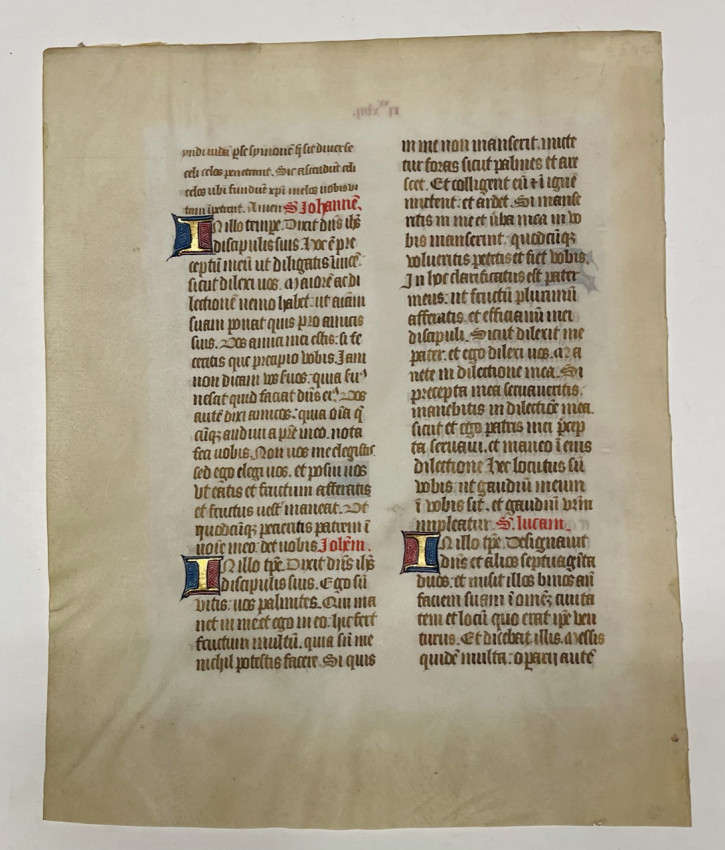 celi celos penetrent. Sic ascendūt celi
celos ubi fundūt xp̄i melos nobis vi
tam īpetrent. Amen S Johannē.
In illo tempe. Dixit dn̄s ih̄s
discipulis suis. Hoc ē p̄re
ceptū meū ut diligatis īuicē.
sicut dilexi uos. Maiorē ac di
lectionē nemo habet. ut aīam
suam ponat quis pro amicis
suis. Vos amici mei estis. si fe
ceritis que precipio vobis. Jam
non dicam vos ẜuos. quia ẜu'
nescit quid faciat dn̄s ei'. Vos
autē dixi amicos. quia oīa q̄
cūq; audiui a p̄re meo. nota
feci uobis. Non uos me elegistis.
sed ego elegi uos. et posui uos
vt eatis et fructum afferatis
et fructus uest̄ maneat. Vt
quodcūq; petieritis patrem ī
noīe meo. det uobis. Joh̄em.
In illo tp̄e. Dixit dn̄s ih̄s
discipulis suis. Ego sū
vitis. uos palmites. Qui ma
net in me. et ego in eo. hic fert
fructum multū. quia sin̄ me
nichil potestis facere. Si quis
in me non manserit. mitte
tur foras sicut palmes et are
scet. Et colligent eū ⁊ ī ignē
mittent. et ardet. Si manse
ritis in me et ūba mea in vo
bis manserint. quodcūq;
volueritis petetis et fiet vobis.
In hoc clarificatus est pater
meus. ut fructū plurimū
afferatis. et efficiamī mei
discipuli. Sicut dilexit me
pater. et ego dilexi uos. Ma
nete in dilectione mea. Si
precepta mea seruaueritis.
manebitis in dilectiōe mea.
sicut et ego patris mei p̄cep
ta seruaui. et maneo ī eius
dilectione. Hec locutus sū
vobis. ut gaudiū meum
ī vobis sit. et gaudiū vr̄m
impleatur. S. lucam.
In illo tp̄e. Designauit
dn̄s et alios septuagīta
duos. et misit illos binos an̄
faciem suam ī omēz ciuita
tem et locū quo erat ip̄e ven
turus. Et dicebat illis. Messis
quidē multa. operarii autē